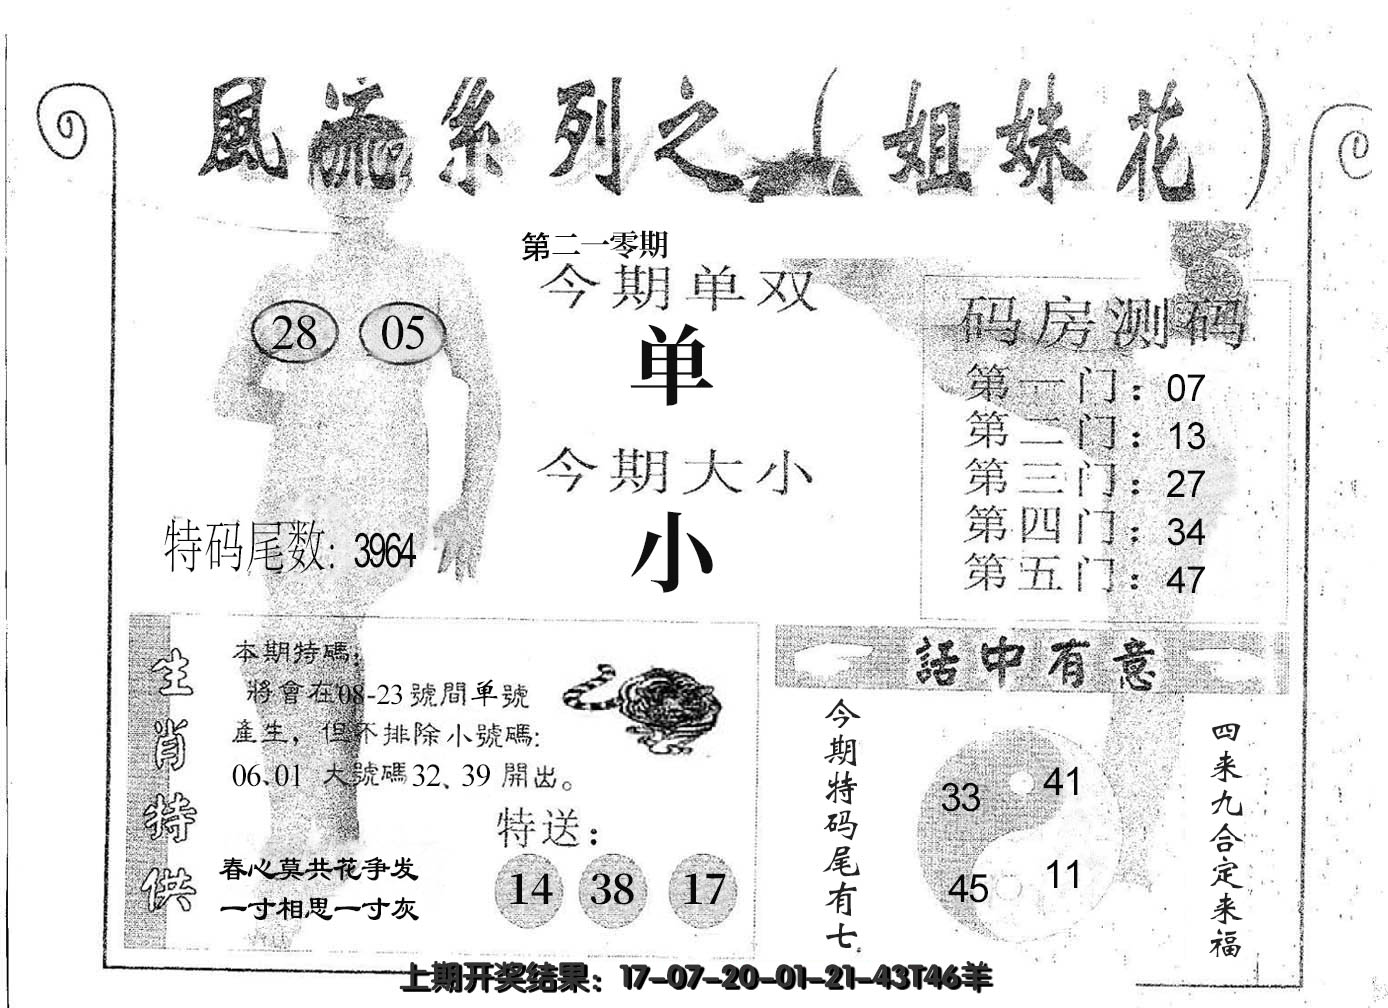 風流系列之（姐妹花）
第二一零期
今期单双
单
今期大小
小
28 05
特码尾数: 3964
码房测码
第一门：07
第二门：13
第三门：27
第四门：34
第五门：47
生肖特供
本期特碼，
將會在08-23號間单號
產生，但不排除小號碼:
06、01 大號碼32、39開出。
特送：
14 38 17
春心莫共花争发
一寸相思一寸灰
話中有意
今期特码尾有七
33 41
45 11
四来九合定来福
上期开奖结果：17-07-20-01-21-43T46羊